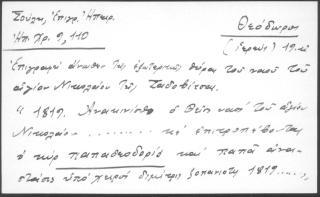 Σούλη, Ἐπιγρ. Ἠπειρ.
Ἠπ. Χρ. 9, 110
Θεόδωρος
(ἱερεύς) 19. αἰ
Ἐπιγραφή ἄνωθεν τῆς ἐξωτερικῆς θύρας τοῦ ναοῦ τοῦ
ἁγίου Νικολάου τῆς
"1819. Ἀνακινίσθι ὁ θεῖος ναός τοῦ ἁγίου
Νικολάου ........ κέ ἐπιτροπέβοντας
ὁ κύρ παπαθεοδορίς καί παπᾶ ἀνα-
στάσις ὑπό χειρός διμίτρις 1819 .....,